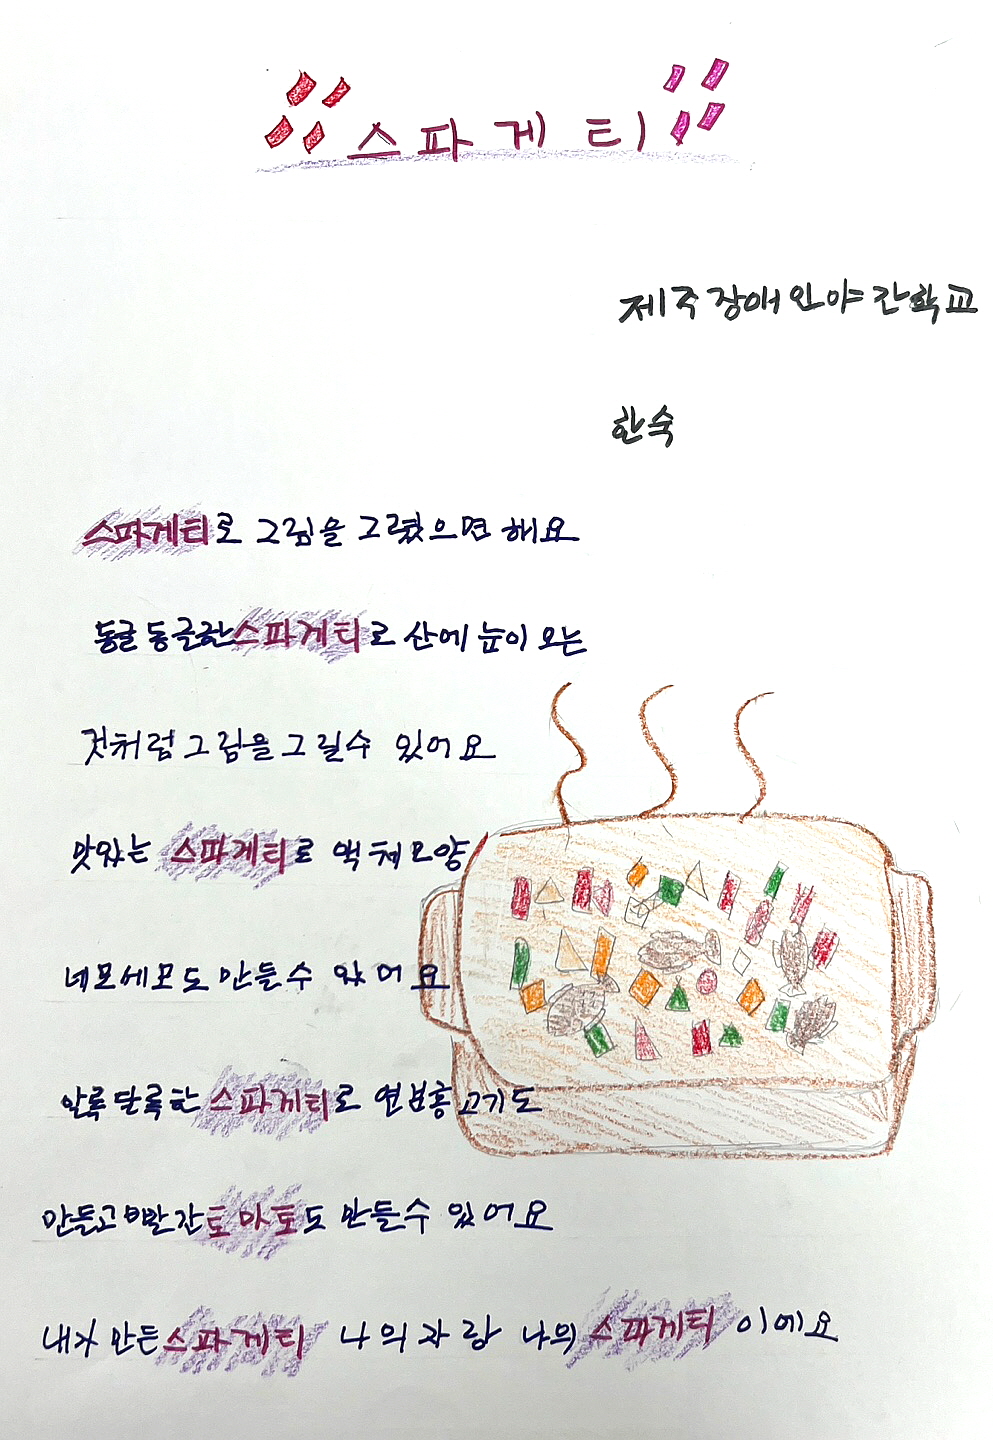 스파게티
제주장애인야간학교
한숙
스파게티로 그림을 그렸으면 해요
동글동글한 스파게티로 산에 눈이 오는
것처럼 그림을 그릴수 있어요
맛있는 스파게티로 액체모양
네모세모도 만들수 있어요
알록달록한 스파게티로 연분홍고기도
만들고 빨간토마토도 만들수 있어요
내가 만든 스파게티 나의 자랑 나의 스파게티이에요